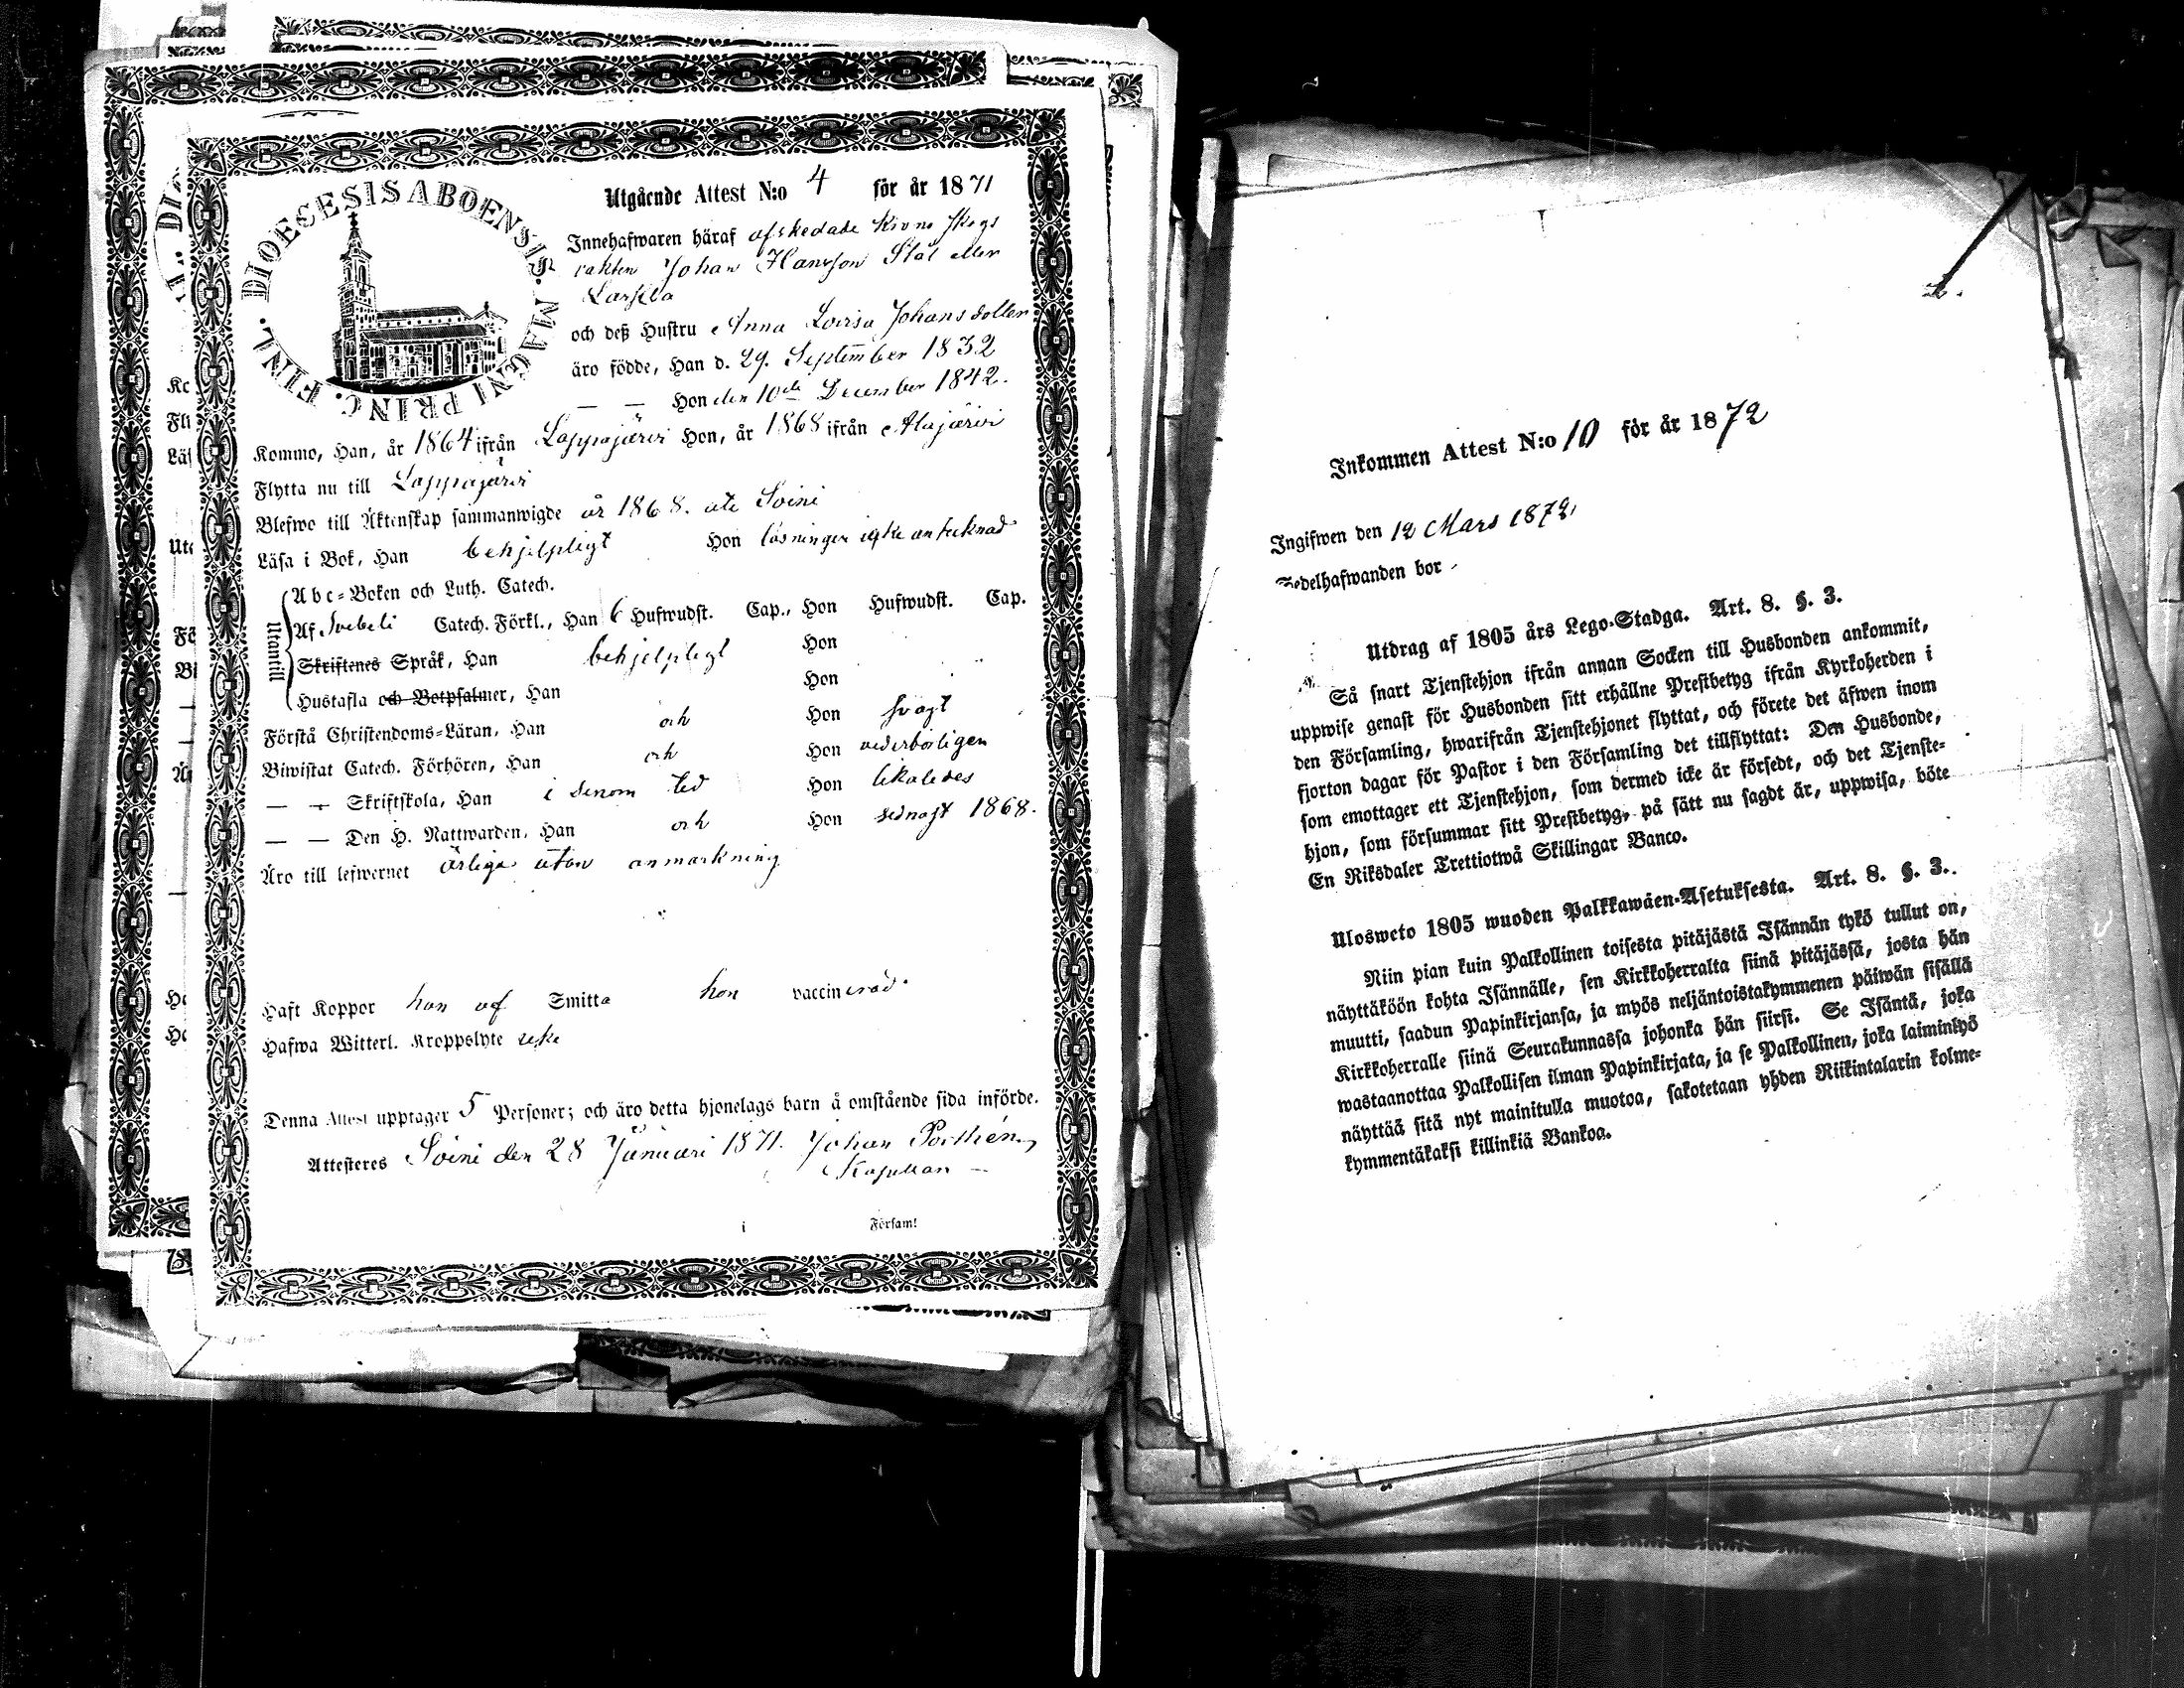 DIOECESIS ABOENSIS. MAGNI PRINC. FINL.
Utgående Attest N:o 4 för år 1871
Innehafwaren häraf afskedade Krono skogs
vakten Johan Hansson Stål eller
och deß Hustru Anna Lovisa Johansdotter
äro födde, Han d. 29. September 1832
— — Hon den 10de December 1842.
Kommo, Han, år 1864 ifrån Lappajärvi Hon, år 1868 ifrån Alajärvi
Flytta nu till Lappajärvi
Blefwo till Äktenskap sammanwigde år 1868. uti Soini
Läsa i Bok, Han behjelpligt Hon läsningen icke antecknad
Utantill
Abc-Boken och Luth. Catech.
Af Svebeli Catech. Förkl., Han 6 Hufwudst. Cap., Hon Hufwudst. Cap.
Skriftenes Språk, Han behjelpligt Hon
Hustafla och Botpsalmer, Han Hon
Förstå Christendoms-Läran, Han och Hon svagt
Biwistat Catech. Förhören, Han och Hon vederbörligen
— — Skriftskola, Han i senom tid Hon likaledes
— — Den H. Nattwarden, Han och Hon sednast 1868.
Äro till lefwernet ärliga utan anmärkning
Haft Koppor han af Smitta hon vaccinerad.
Hafwa Witterl. Kroppslyte icke
Denna Attest upptager 5 Personer; och äro detta hjonelags barn å omstående sida införde.
Attesteres Soini den 28 Januari 1871. Johan Porthén,
Kapellan —
i Församl
Inkommen Attest N:o 10 för år 1872
Ingifwen den 12 Mars 1872,
Sedelhafwanden bor
Utdrag af 1805 års Lego-Stadga. Art. 8. §. 3.
Så snart Tjenstehjon ifrån annan Socken till Husbonden ankommit,
uppwise genast för Husbonden sitt erhållne Prestbetyg ifrån Kyrkoherden i
den Församling, hwarifrån Tjenstehjonet flyttat, och förete det äfwen inom
fjorton dagar för Pastor i den Församling det tillflyttat: Den Husbonde,
som emottager ett Tjenstehjon, som dermed icke är försedt, och det Tjenste-
hjon, som försummar sitt Prestbetyg, på sätt nu sagdt är, uppwisa, böte
En Riksdaler Trettiotwå Skillingar Banco.
Ulosweto 1805 wuoden Palkkawäen-Asetuksesta. Art. 8. §. 3.
Niin pian kuin Palkollinen toisesta pitäjästä Isännän tykö tullut on,
näyttäköön kohta Isännälle, sen Kirkkoherralta siinä pitäjässä, josta hän
muutti, saadun Papinkirjansa, ja myös neljäntoistakymmenen päiwän sisällä
Kirkkoherralle siinä Seurakunnassa johonka hän siirsi. Se Isäntä, joka
wastaanottaa Palkollisen ilman Papinkirjata, ja se Palkollinen, joka laiminlyö
näyttää sitä nyt mainitulla muotoa, sakotetaan yhden Riikintalarin kolme-
kymmentäkaksi killinkiä Bankoa.